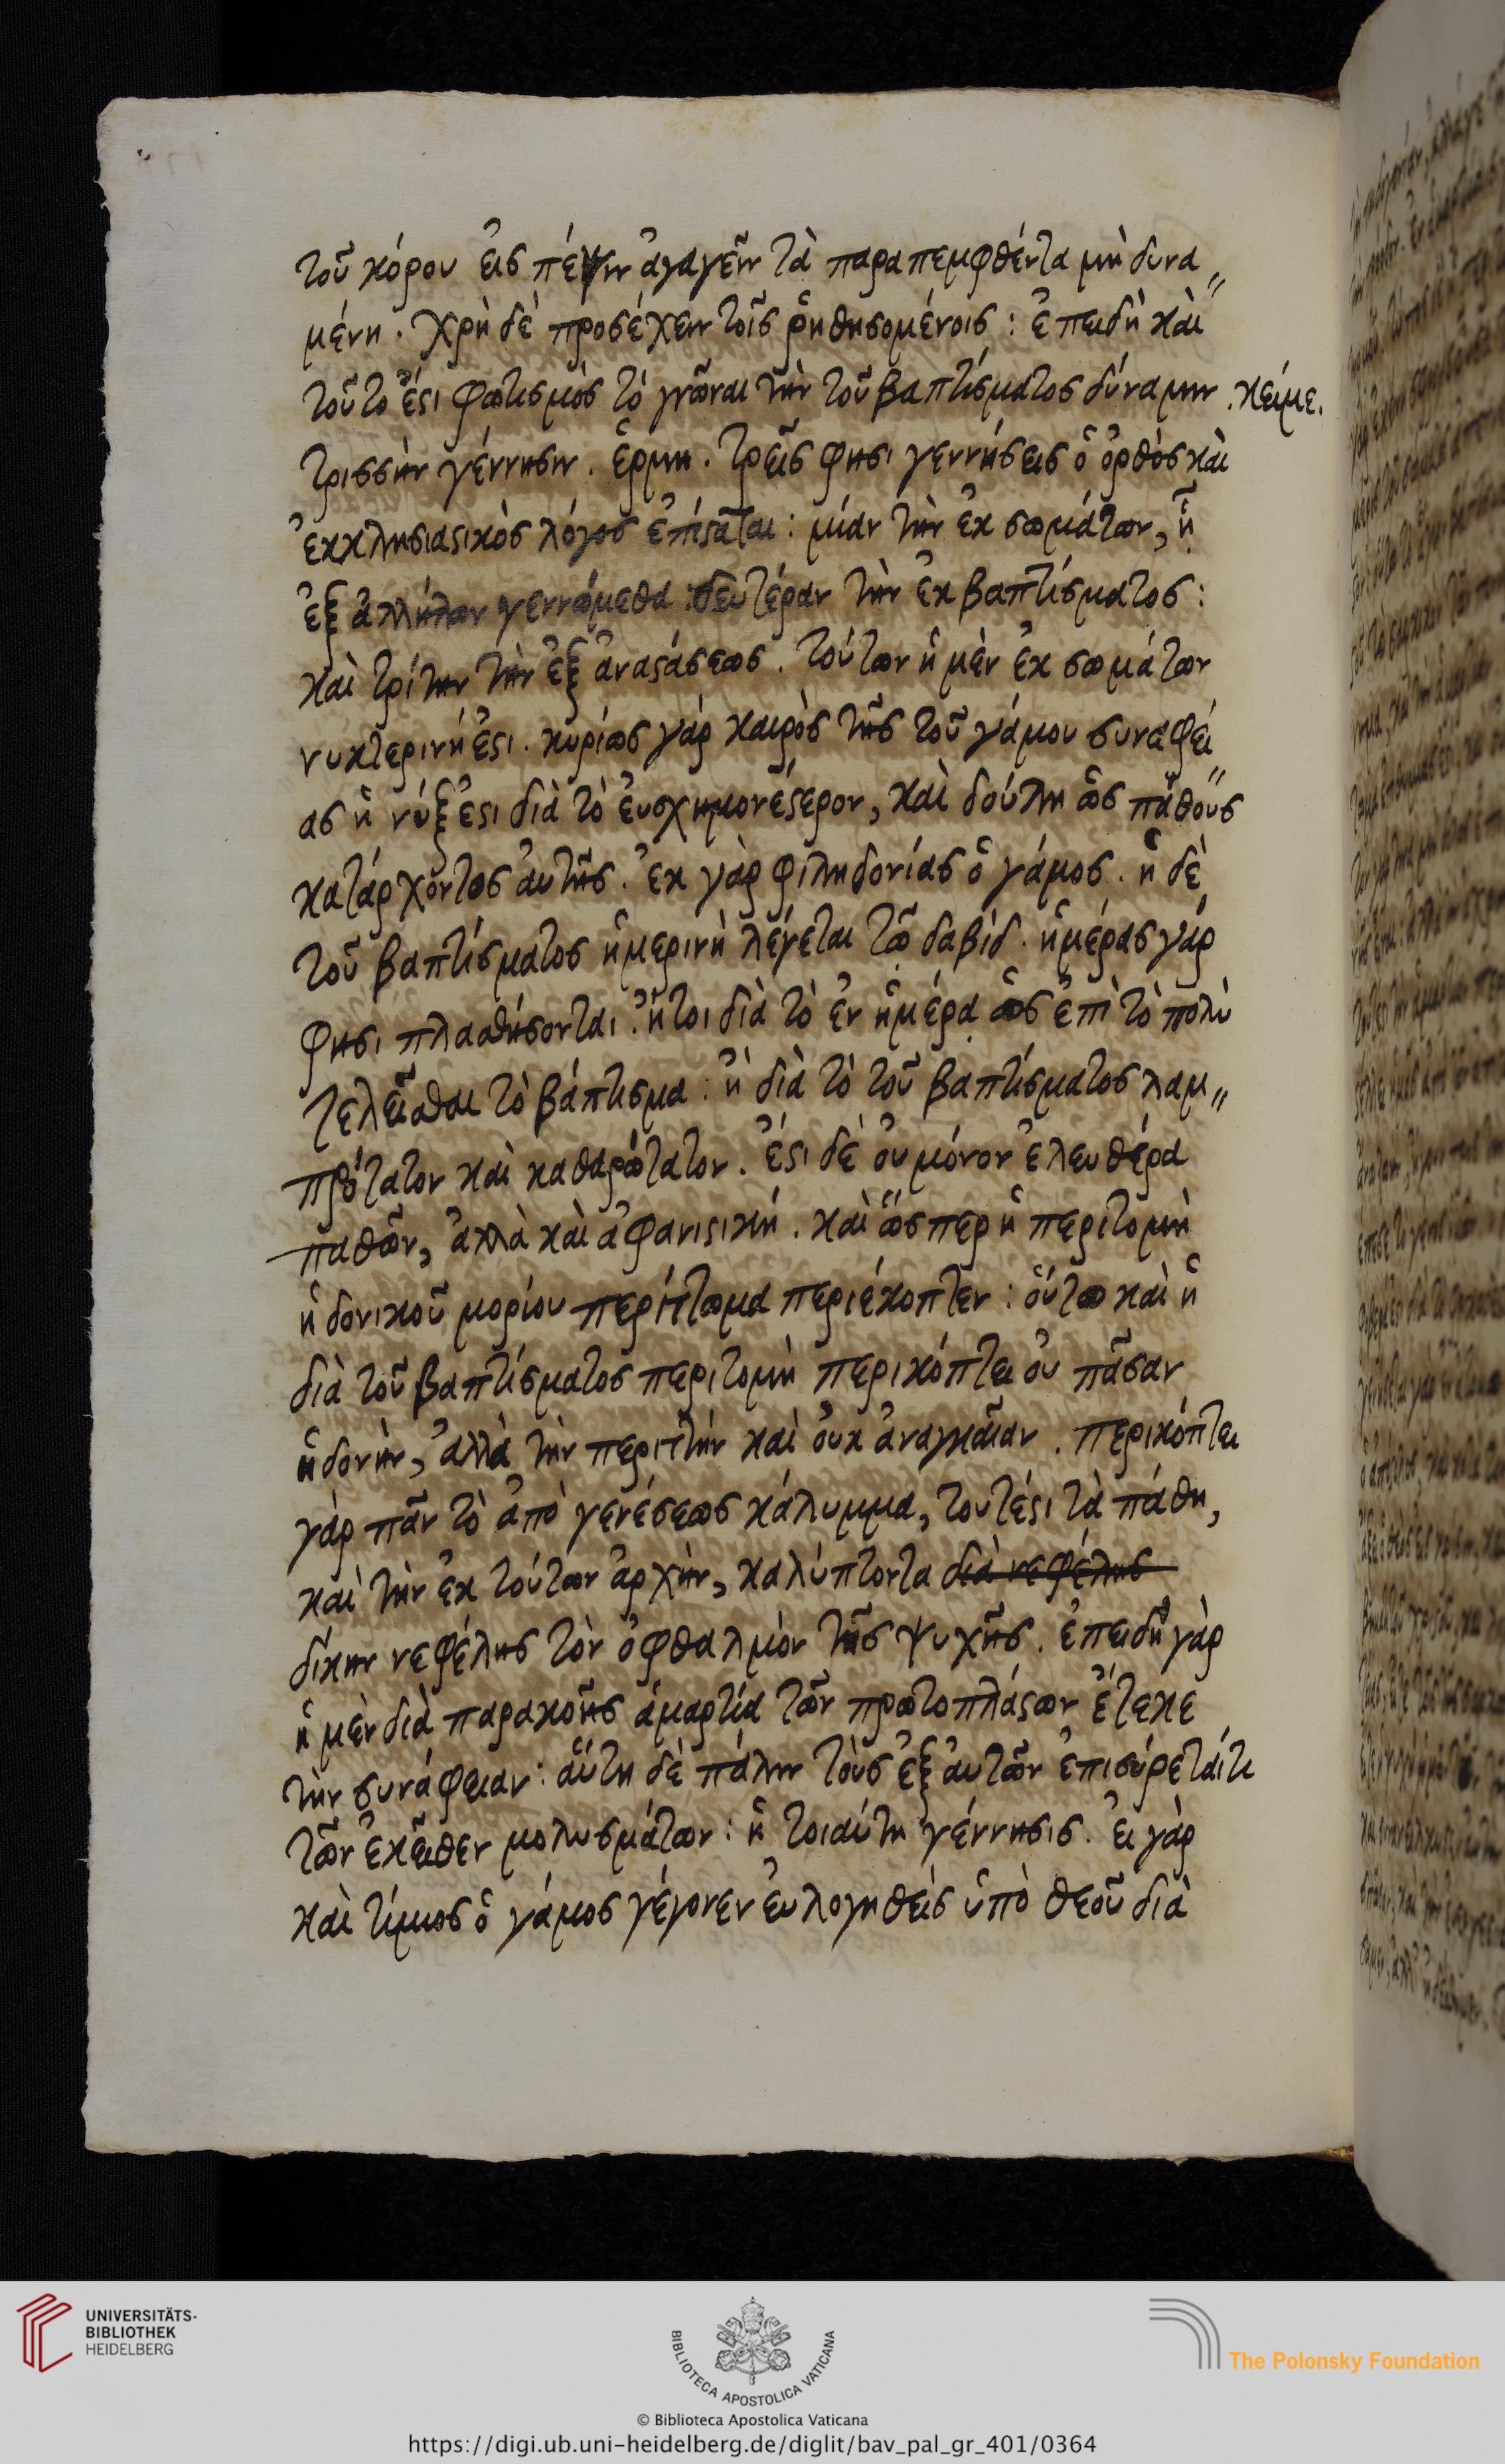 τοῦ κόρου εἰς πέψιν ἀγαγεῖν τὰ παραπεμφθέντα μὴ δυνα〃
μένη. χρὴ δὲ προσέχειν τοῖς ῥηθησομένοις: ἐπειδὴ καὶ
τοῦτο ἐϛὶ φωτισμὸς τὸ γνῶναι τὴν τοῦ βαπτίσματος δύναμιν. κείμε.
τρισσὴν γέννησιν. ἑρμη. τρεῖς φησι γεννήσεις ὁ ὀρθὸς καὶ
ἐκκλησιαϛικὸς λόγος ἐπίϛαται: μίαν τὴν ἐκ σωμάτων, ᾗ
ἐξ ἀλλήλων γεννώμεθα: δευτέραν τὴν ἐκ βαπτίσματος:
καὶ τρίτην τὴν ἐξ ἀναϛάσεως. τούτων ἡ μὲν ἐκ σωμάτων
νυκτερινή ἐϛι. κυρίως γάρ καιρὸς τῆς τοῦ γάμου συναφεί
ας ἡ νύξ ἐϛι διὰ τὸ εὐσχημονέϛερον, καὶ δούλη ὡς πάθους
κατάρχοντος αὐτῆς. ἐκ γὰρ φιληδονίας ὁ γάμος. ἡ δὲ
τοῦ βαπτίσματος ἡμερινὴ λέγεται τῷ δαβίδ. ἡμέρας γάρ
φησι πλασθήσονται. ἤτοι διὰ τὸ ἐν ἡμέρᾳ ὡς ἐπὶ τὸ πολὺ
τελεῖσθαι τὸ βάπτισμα: ἢ διὰ τὸ τοῦ βαπτίσματος λαμ〃
πρότατον καὶ καθαρώτατον. ἔϛι δὲ οὐ μόνον ἐλευθέρα
παθῶν, ἀλλὰ καὶ ἀφανιϛική. καὶ ὥσπερ ἡ περιτομὴ
ἡδονικοῦ μορίου περίττωμα περιέκοπτεν: οὕτω καὶ ἡ
διὰ τοῦ βαπτίσματος περιτομὴ περικόπτει οὐ πᾶσαν
ἡδονὴν, ἀλλὰ τὴν περιττὴν καὶ οὐκ ἀναγκαίαν. περικόπτει
γάρ πᾶν τὸ ἀπὸ γενέσεως κάλυμμα, τουτέϛι τὰ πάθη,
καὶ τὴν ἐκ τούτων ἀρχὴν, καλύπτοντα διὰ νεφέλης
δίκην νεφέλης τὸν ὀφθαλμὸν τῆς ψυχῆς. ἐπειδὴ γὰρ
ἡ μὲν διὰ παρακοῆς ἁμαρτία τῶν πρωτοπλάϛων ἔτεκε
τὴν συνάφειαν: αὕτη δὲ πάλιν τοὺς ἐξ αὐτῶν ἐπισύρεταί τι
τῶν ἐκεῖθεν μολυσμάτων: ἡ τοιαύτη γέννησις. εἰ γὰρ
καὶ τίμιος ὁ γάμος γέγονεν εὐλογηθεὶς ὑπὸ θεοῦ διὰ
UNIVERSITÄTS-
BIBLIOTHEK
HEIDELBERG
BIBLIOTECA APOSTOLICA VATICANA
The Polonsky Foundation
© Biblioteca Apostolica Vaticana
https://digi.ub.uni-heidelberg.de/diglit/bav_pal_gr_401/0364